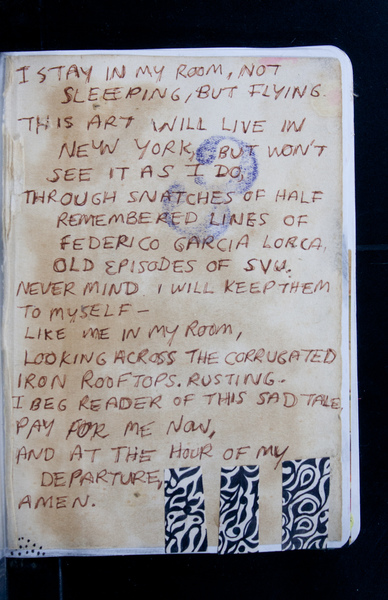 I STAY IN MY ROOM, NOT
SLEEPING, BUT FLYING.
THIS ART WILL LIVE IN
NEW YORK, BUT WON'T
SEE IT AS I DO,
THROUGH SNATCHES OF HALF
REMEMBERED LINES OF
FEDERICO GARCIA LORCA,
OLD EPISODES OF SVU.
NEVER MIND. I WILL KEEP THEM
TO MYSELF—
LIKE ME IN MY ROOM,
LOOKING ACROSS THE CORRUGATED
IRON ROOFTOPS. RUSTING.
I BEG READER OF THIS SAD TALE,
PAY FOR ME NOW,
AND AT THE HOUR OF MY
DEPARTURE,
AMEN.